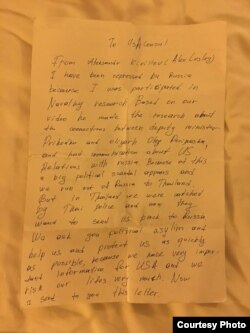 To USA Consul
From Aleksandr Kirillov (Alex Lesley)
I have been repressed by Russia
because I was participated in
Navalny research. Based on our
video he made the research about
the connections between deputy minister
Prihodko and oligarh Oleg Deripaska,
and had communication about US
Relations with russia. Because of this
a big political scandal appears and
we run out of Russia to Thailand
But in Thailand we were catched
by Thai police and now they
want to send us back to Russia
We ask you political asylum and
help us and protect us as quickly
as possible, because we have very impor-
tant information for USA and we
risk our lives very much. Now
I send to you this letter
Courtesy Photo